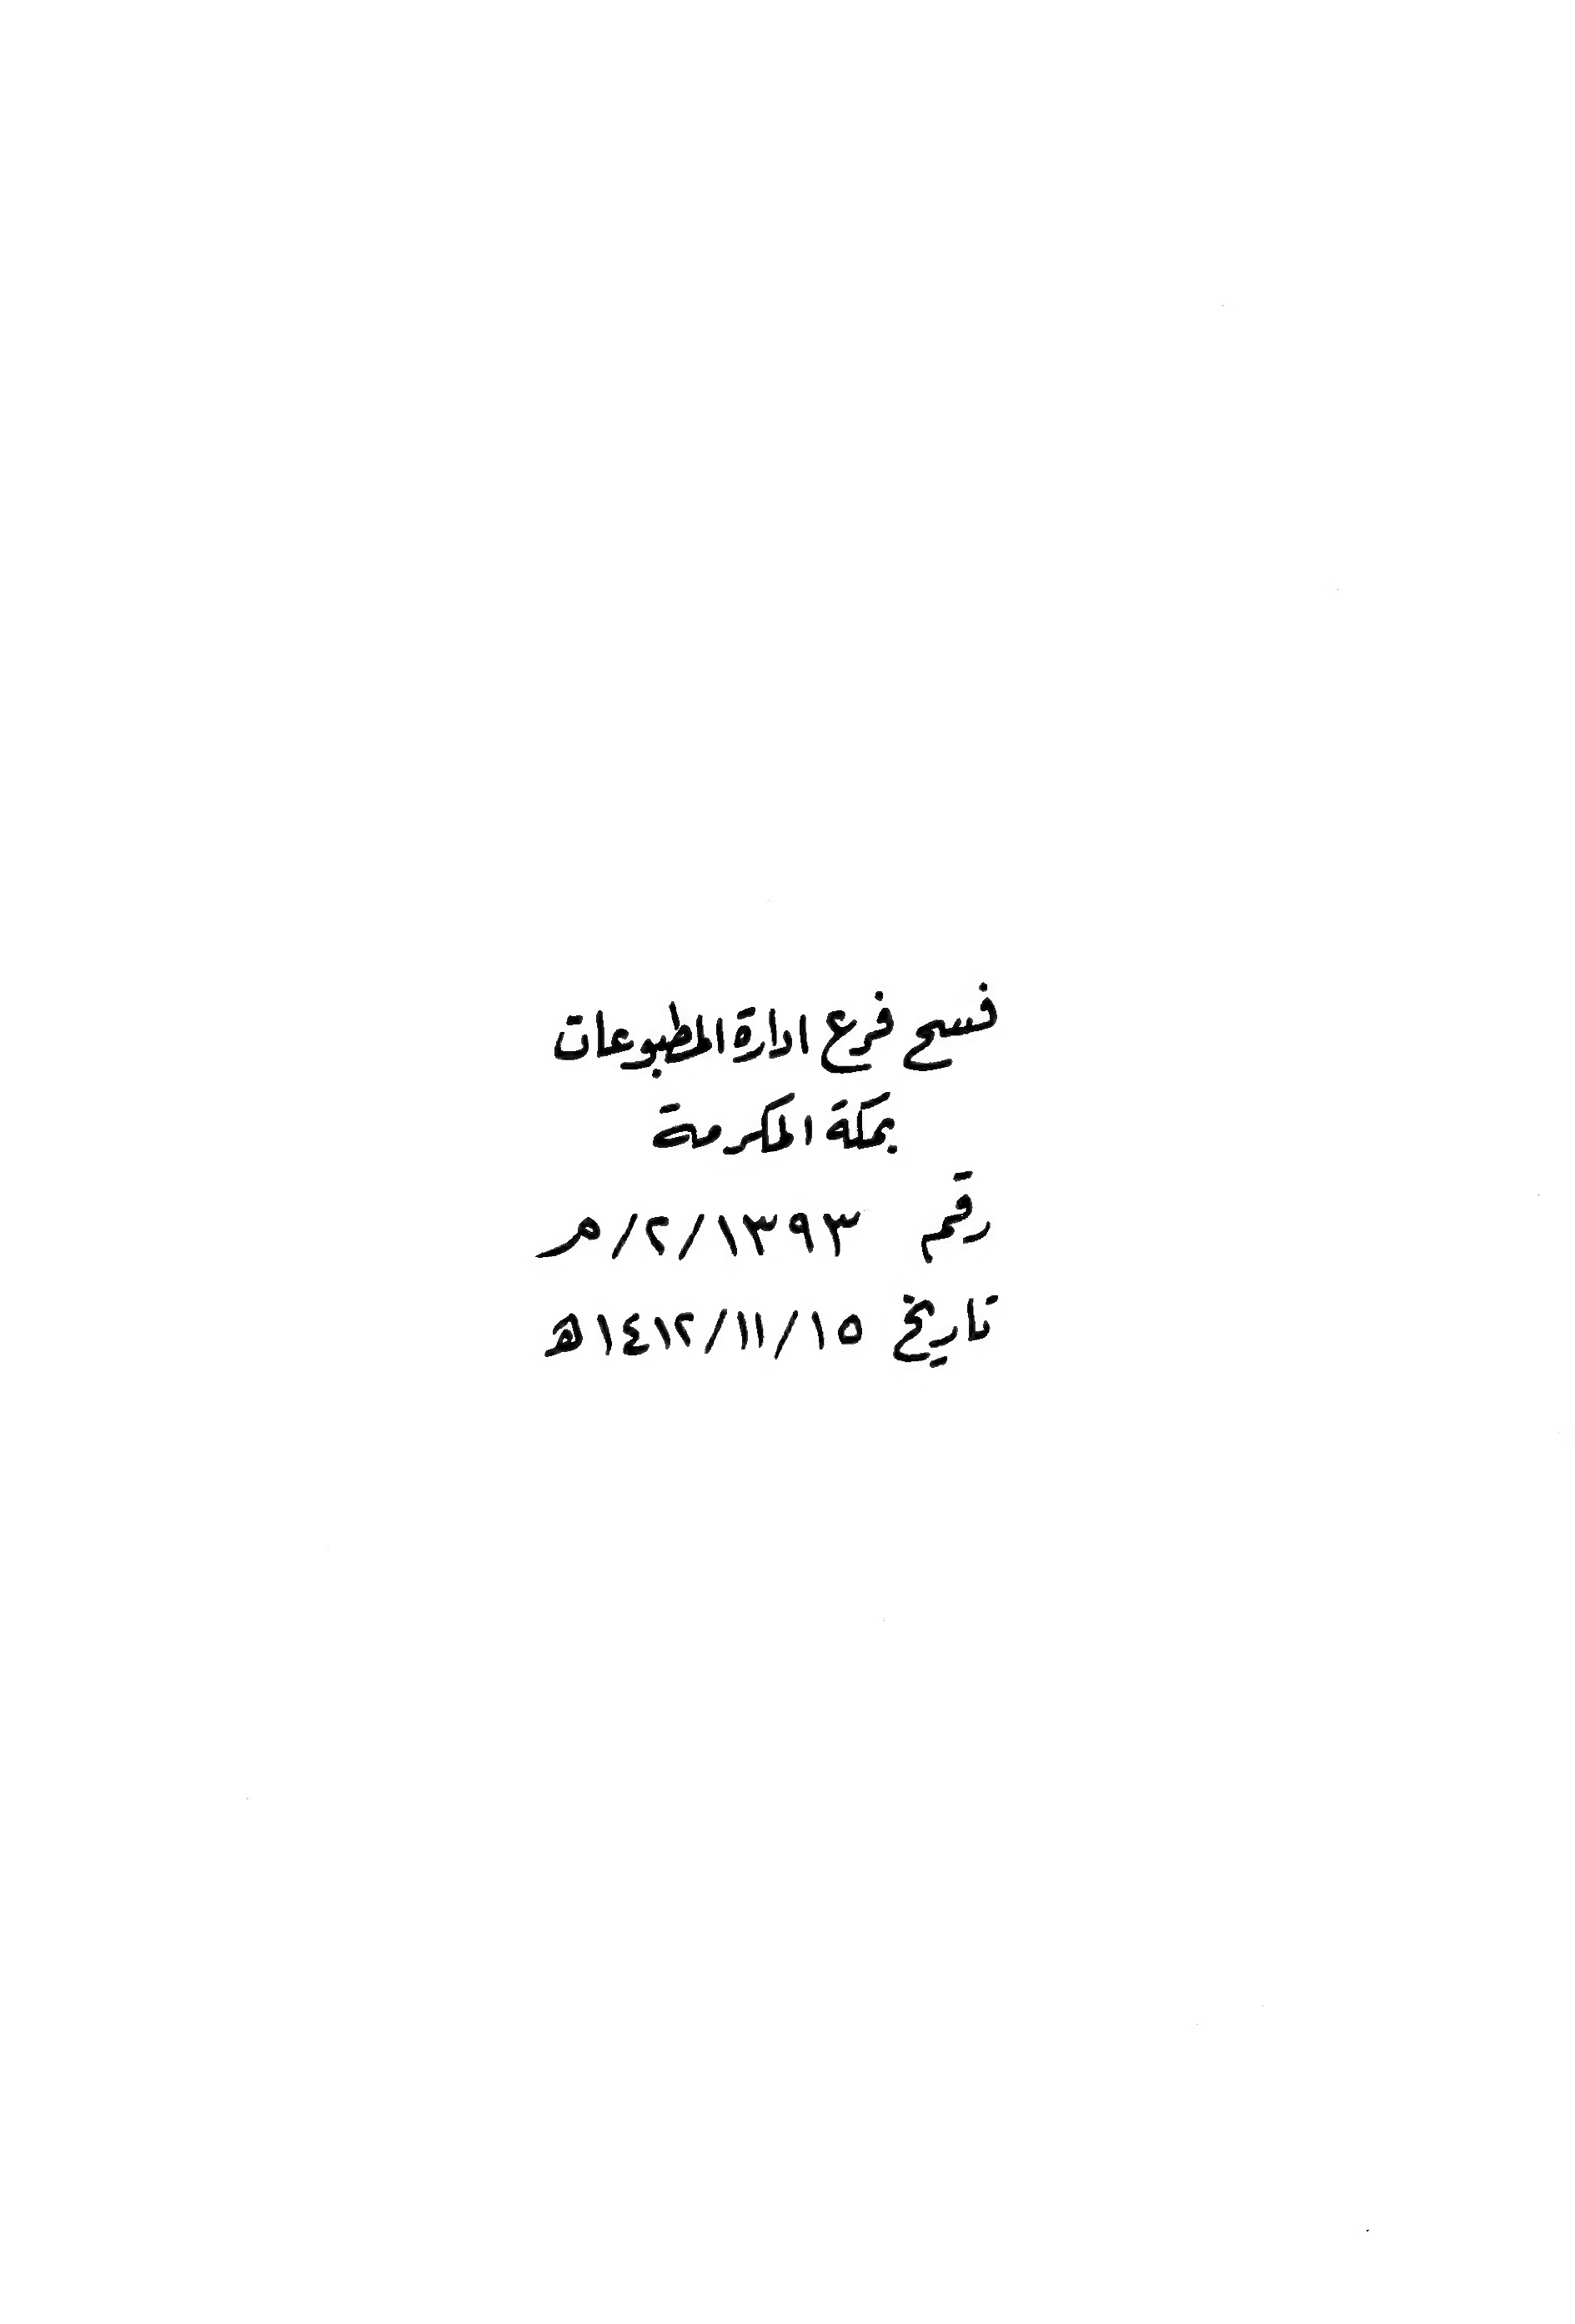 فسح فرع ادارة المطبوعات
بمكة المكرمة
رقم ١٣٩٣/٢/م
تاريخ ١٤١٢/١١/١٥ه